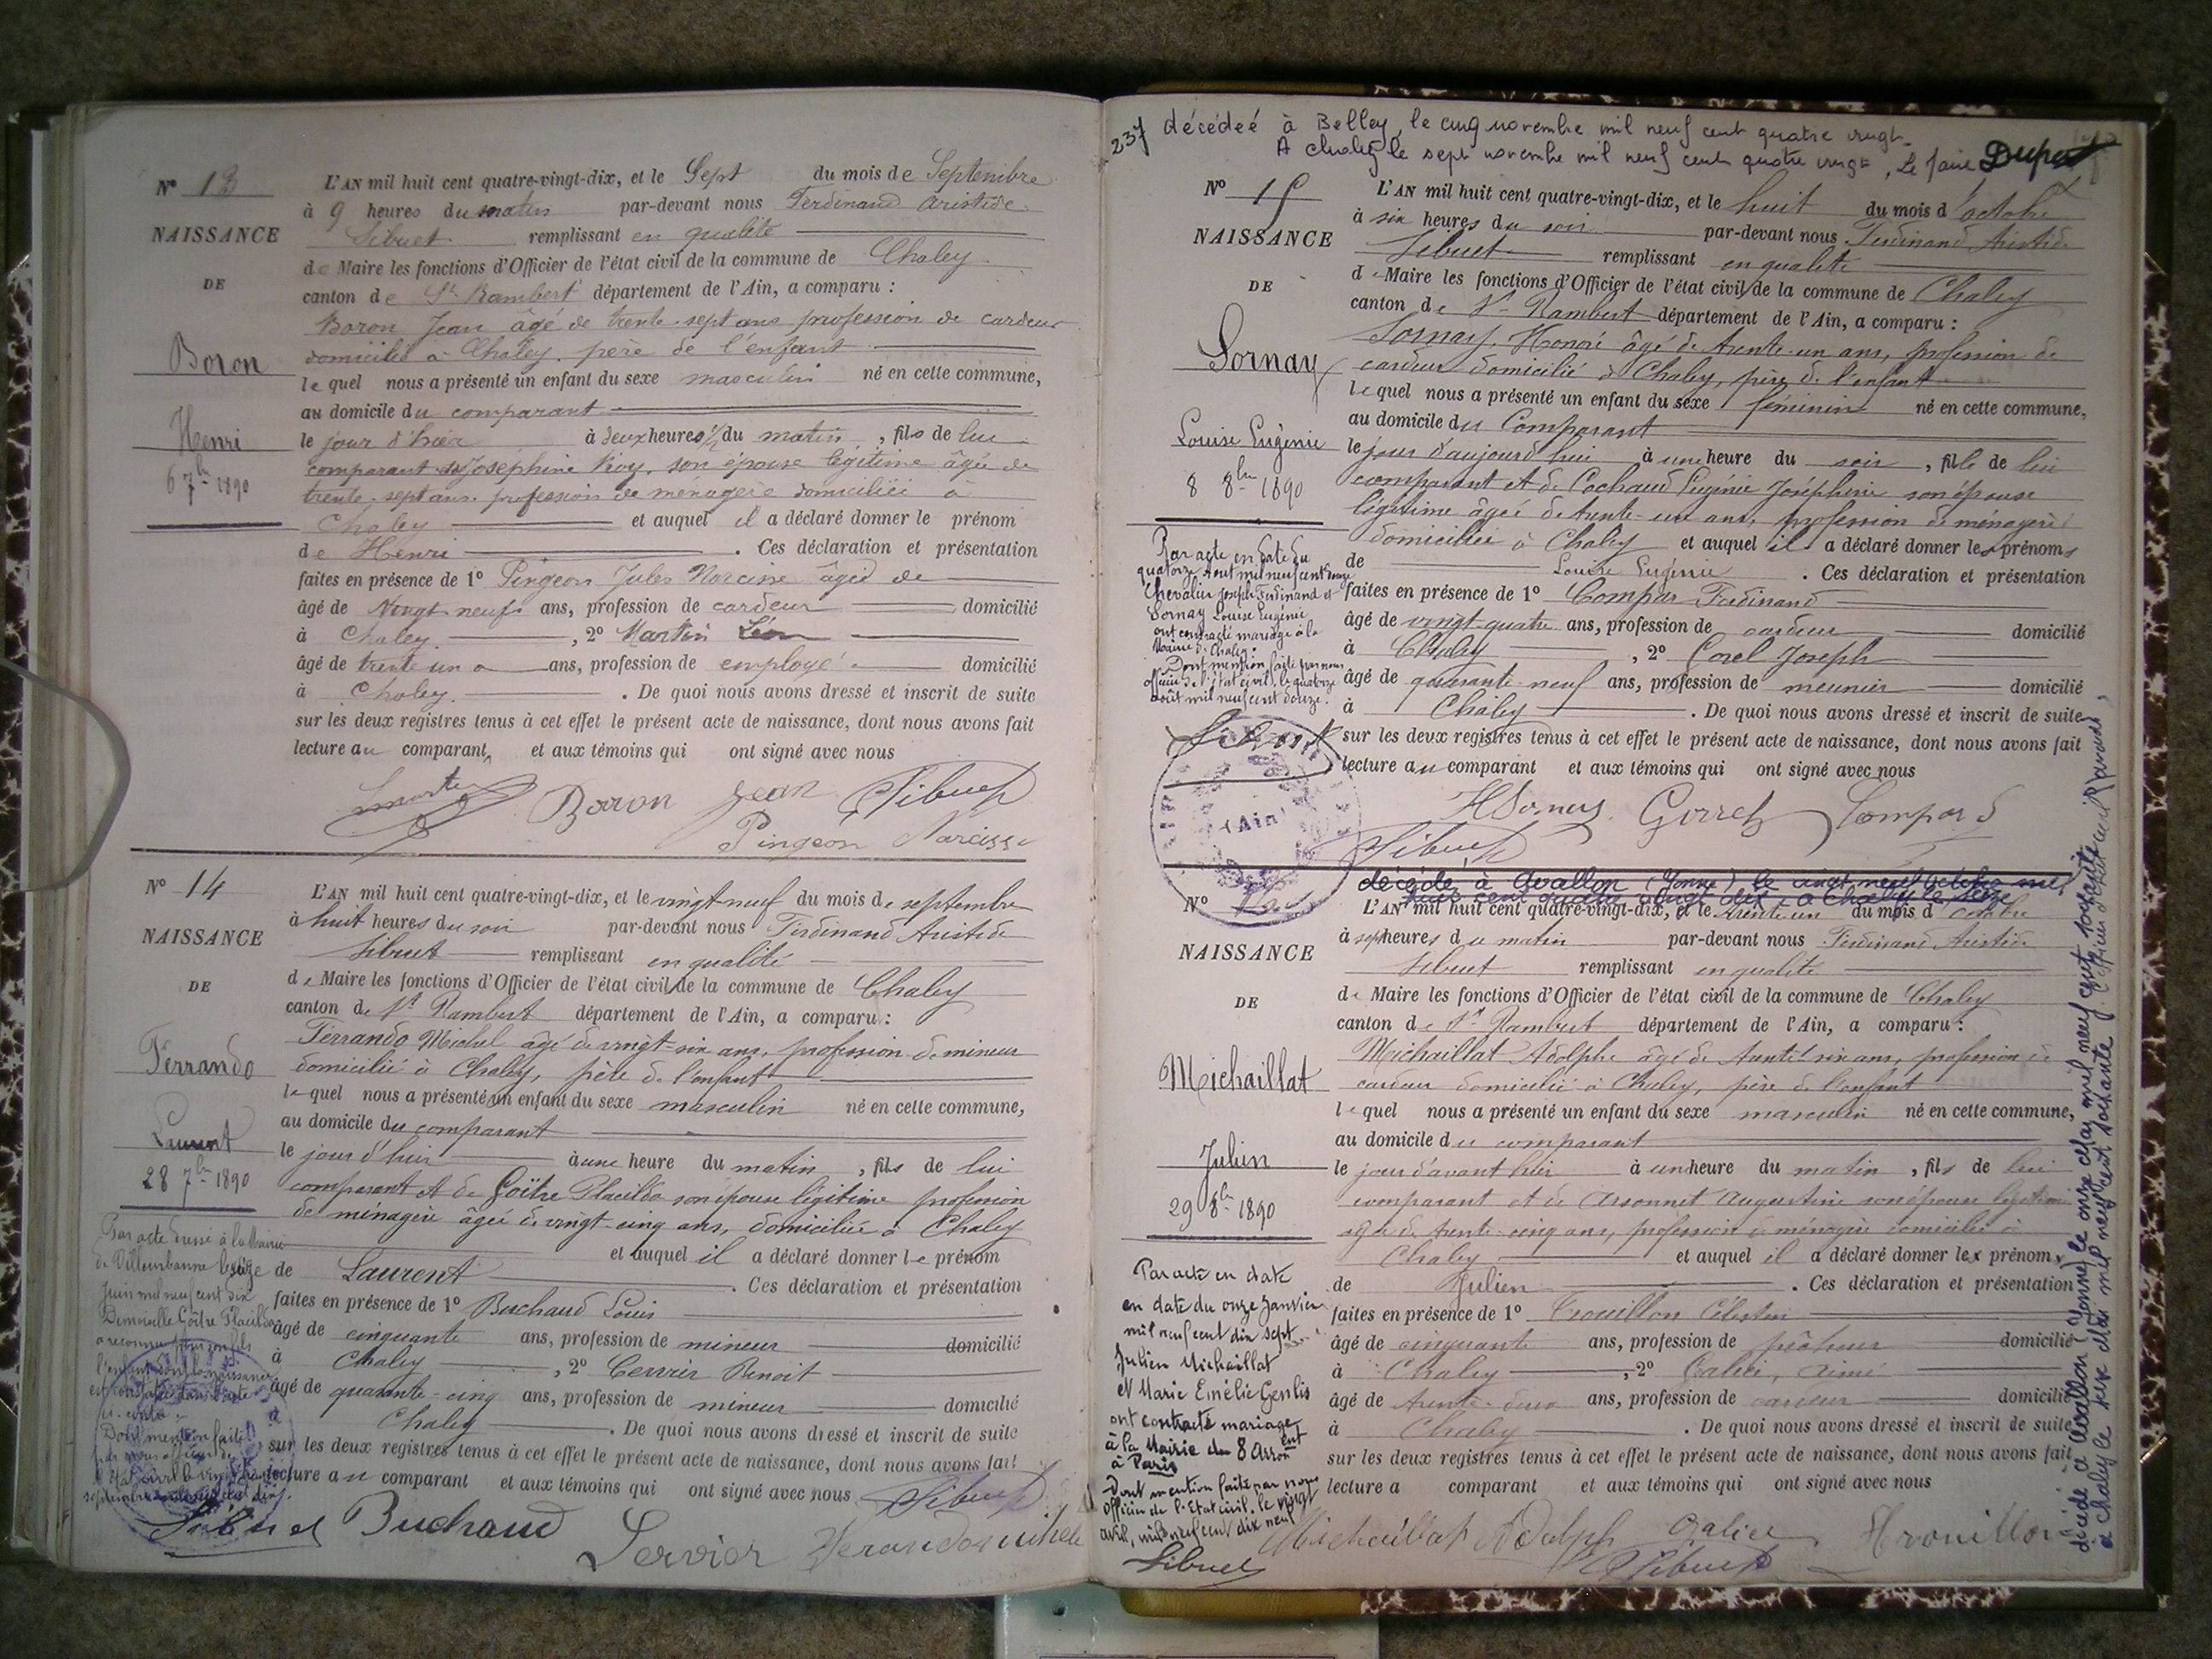 N° 13
NAISSANCE
DE
Boron
Henri
6 7bre 1890
L'AN mil huit cent quatre-vingt-dix, et le Sept du mois de Septembre
à 9 heures du matin par-devant nous Ferdinand Aristide
Sibuet remplissant en qualité
de Maire les fonctions d'Officier de l'état civil de la commune de Chaley
canton de St Rambert département de l'Ain, a comparu :
Boron Jean âgé de trente-sept ans profession de cardeur
domicilié à Chaley père de l'enfant
lequel nous a présenté un enfant du sexe masculin né en cette commune,
au domicile du comparant
le jour d'hier à deux heures ½ du matin, fils de lui
comparant et Joséphine Roy, son épouse légitime âgée de
trente-sept ans profession de ménagère domiciliée à
Chaley et auquel il a déclaré donner le prénom
de Henri. Ces déclaration et présentation
faites en présence de 1° Pingeon Jules Narcisse âgé de
âgé de vingt neuf ans, profession de cardeur domicilié
à Chaley, 2° Martin Léon
âgé de trente un ans, profession de employé domicilié
à Chaley. De quoi nous avons dressé et inscrit de suite
sur les deux registres tenus à cet effet le présent acte de naissance, dont nous avons fait
lecture au comparant, et aux témoins qui ont signé avec nous
Boron Jean Sibuet
Pingeon Narcisse
N° 14
NAISSANCE
DE
Ferrando
Laurent
28 7bre 1890
L'AN mil huit cent quatre-vingt-dix, et le vingt neuf du mois de septembre
à huit heures du soir par-devant nous Ferdinand Aristide
Sibuet remplissant en qualité
de Maire les fonctions d'Officier de l'état civil de la commune de Chaley
canton de St Rambert département de l'Ain, a comparu :
Ferrando Michel âgé de vingt-six ans, profession de mineur
domicilié à Chaley, père de l'enfant
lequel nous a présenté un enfant du sexe masculin né en cette commune,
au domicile du comparant
le jour d'hier à une heure du matin, fils de lui
comparant et de Goïtre Placilda son épouse légitime profession
de ménagère âgée de vingt-cinq ans, domiciliée à Chaley
et auquel il a déclaré donner le prénom
de Laurent. Ces déclaration et présentation
faites en présence de 1° Buchaud Louis
âgé de cinquante ans, profession de mineur domicilié
à Chaley, 2° Cervier Benoit
âgé de quarante-cinq ans, profession de mineur domicilié
à Chaley. De quoi nous avons dressé et inscrit de suite
sur les deux registres tenus à cet effet le présent acte de naissance, dont nous avons fait
lecture au comparant et aux témoins qui ont signé avec nous Sibuet
Par acte dressé à la Mairie
de Villeurbanne le
Juin mil neuf cent dix
Demoiselle Goïtre Placilda
a reconnu pour son fils
l'enfant dont la naissance
est constatée dans l'acte
ci-contre.
Dont mention faite
Sibuet Buchaud
Servier
237 décédée à Belley, le cinq novembre mil neuf cent quatre vingt
A Chaley le sept novembre mil neuf cent quatre vingt, Le Maire
N° 15
NAISSANCE
DE
Sornay
Louise Eugénie
8 8bre 1890
L'AN mil huit cent quatre-vingt-dix, et le huit du mois d'octobre
à six heures du soir par-devant nous Ferdinand Aristide
Sibuet remplissant en qualité
de Maire les fonctions d'Officier de l'état civil de la commune de Chaley
canton de St Rambert département de l'Ain, a comparu :
Sornay Honoré âgé de trente-un ans, profession de
cardeur domicilié à Chaley, père de l'enfant
lequel nous a présenté un enfant du sexe féminin né en cette commune,
au domicile du Comparant
le jour d'aujourd'hui à une heure du soir, fille de lui
comparant et de Cochaud Eugénie Joséphine son épouse
légitime âgée de trente-un ans, profession de ménagère
domiciliée à Chaley et auquel il a déclaré donner les prénoms
de Louise Eugénie. Ces déclaration et présentation
faites en présence de 1° Compar Ferdinand
âgé de vingt-quatre ans, profession de cardeur domicilié
à Chaley, 2° Corel Joseph
âgé de quarante-neuf ans, profession de meunier domicilié
à Chaley. De quoi nous avons dressé et inscrit de suite
sur les deux registres tenus à cet effet le présent acte de naissance, dont nous avons fait
lecture au comparant et aux témoins qui ont signé avec nous
Par acte en date du
quatorze Aout mil neuf cent douze
Chevalier Joseph Ferdinand et
Sornay Louise Eugénie
ont contracté mariage à la
Mairie de Chaley.
Dont mention faite par nous
officier de l'état civil, le quatorze
août mil neuf cent douze.
Sibuet
(Ain)
Sibuet
décédé à Avallon (Yonne) le vingt neuf octobre mil
huit cent quatre vingt dix, à Chaley le seize
N° 16
NAISSANCE
DE
Michaillat
Julien
29 8bre 1890
L'AN mil huit cent quatre-vingt-dix, et le trente un du mois d'octobre
à sept heures du matin par-devant nous Ferdinand Aristide
Sibuet remplissant en qualité
de Maire les fonctions d'Officier de l'état civil de la commune de Chaley
canton de St Rambert département de l'Ain, a comparu :
Michaillat Adolphe âgé de trente six ans, profession de
cardeur domicilié à Chaley, père de l'enfant
lequel nous a présenté un enfant du sexe masculin né en cette commune,
au domicile du comparant
le jour d'avant hier à une heure du matin, fils de lui
comparant et de Arsonnet Augustine son épouse légitime
âgée de trente-cinq ans, profession de ménagère domiciliée à
Chaley et auquel il a déclaré donner les prénoms
de Julien. Ces déclaration et présentation
faites en présence de 1° Trouillon Célestin
âgé de cinquante ans, profession de pêcheur domicilié
à Chaley, 2° Galici, Aimé
âgé de trente-deux ans, profession de cardeur domicilié
à Chaley. De quoi nous avons dressé et inscrit de suite
sur les deux registres tenus à cet effet le présent acte de naissance, dont nous avons fait
lecture a comparant et aux témoins qui ont signé avec nous
Par acte en date
en date du onze Janvier
mil neuf cent dix sept
Julien Michaillat
et Marie Emélie Genlis
ont contracté mariage
à la Mairie du 8 Arrond
à Paris
Dont mention faite par nous
Officier de l'Etat civil. le vingt
avril, mil neuf cent dix neuf
Sibuet
Michaillat Adolph
Sibuet
décédé à Avallon (Yonne) le onze Mai mil neuf cent soixante
à Chaley le seize Mai mil neuf cent soixante